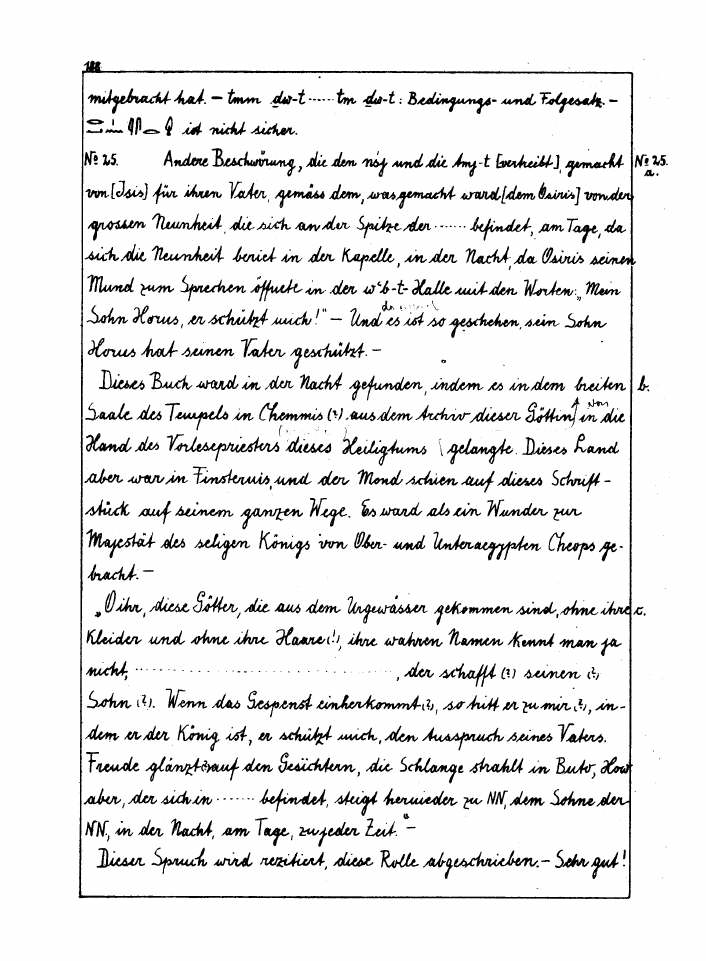 188
mitgebracht hat. – tmm dw-t ...... tm dw-t : Bedingungs- und Folgesatz. –
ist nicht sicher.
No 25. Andere Beschwörung, die den nsj und die tmj-t [vertreibt], gemacht No 25. a.
von [Isis] für ihren Vater, gemäss dem, was gemacht ward [dem Osiris] von der
grossen Neunheit, die sich an der Spitze der ...... befindet, am Tage, da
sich die Neunheit beriet in der Kapelle, in der Nacht, da Osiris seinen
Mund zum Sprechen öffnete in der wʿb-t-Halle mit den Worten: „Mein
Sohn Horus, er schützt mich!" – Und es ist so geschehen, sein Sohn
Horus hat seinen Vater geschützt. –
Dieses Buch ward in der Nacht gefunden, indem es in dem breiten b.
Saale des Tempels in Chemmis (?) aus dem Archiv dieser Göttin von in die
Hand des Vorlesepriesters dieses Heiligtums gelangte. Dieses Land
aber war in Finsternis, und der Mond schien auf dieses Schrift-
stück auf seinem ganzen Wege. Es ward als ein Wunder zur
Majestät des seligen Königs von Ober- und Unteraegypten Cheops ge-
bracht. –
„O ihr, diese Götter, die aus dem Urgewässer gekommen sind, ohne ihre c.
Kleider und ohne ihre Haare (!), ihre wahren Namen kennt man ja
nicht, ................................, der schafft (?) seinen (?)
Sohn (?). Wenn das Gespenst einherkommt (?), so tritt er zu mir (?), in-
dem er der König ist, er schützt mich, den Ausspruch seines Vaters.
Freude glänzt (?) auf den Gesichtern, die Schlange strahlt in Buto, Horus
aber, der sich in ...... befindet, steigt hernieder zu NN, dem Sohne der
NN, in der Nacht, am Tage, zu jeder Zeit." –
Dieser Spruch wird rezitiert, diese Rolle abgeschrieben. – Sehr gut!